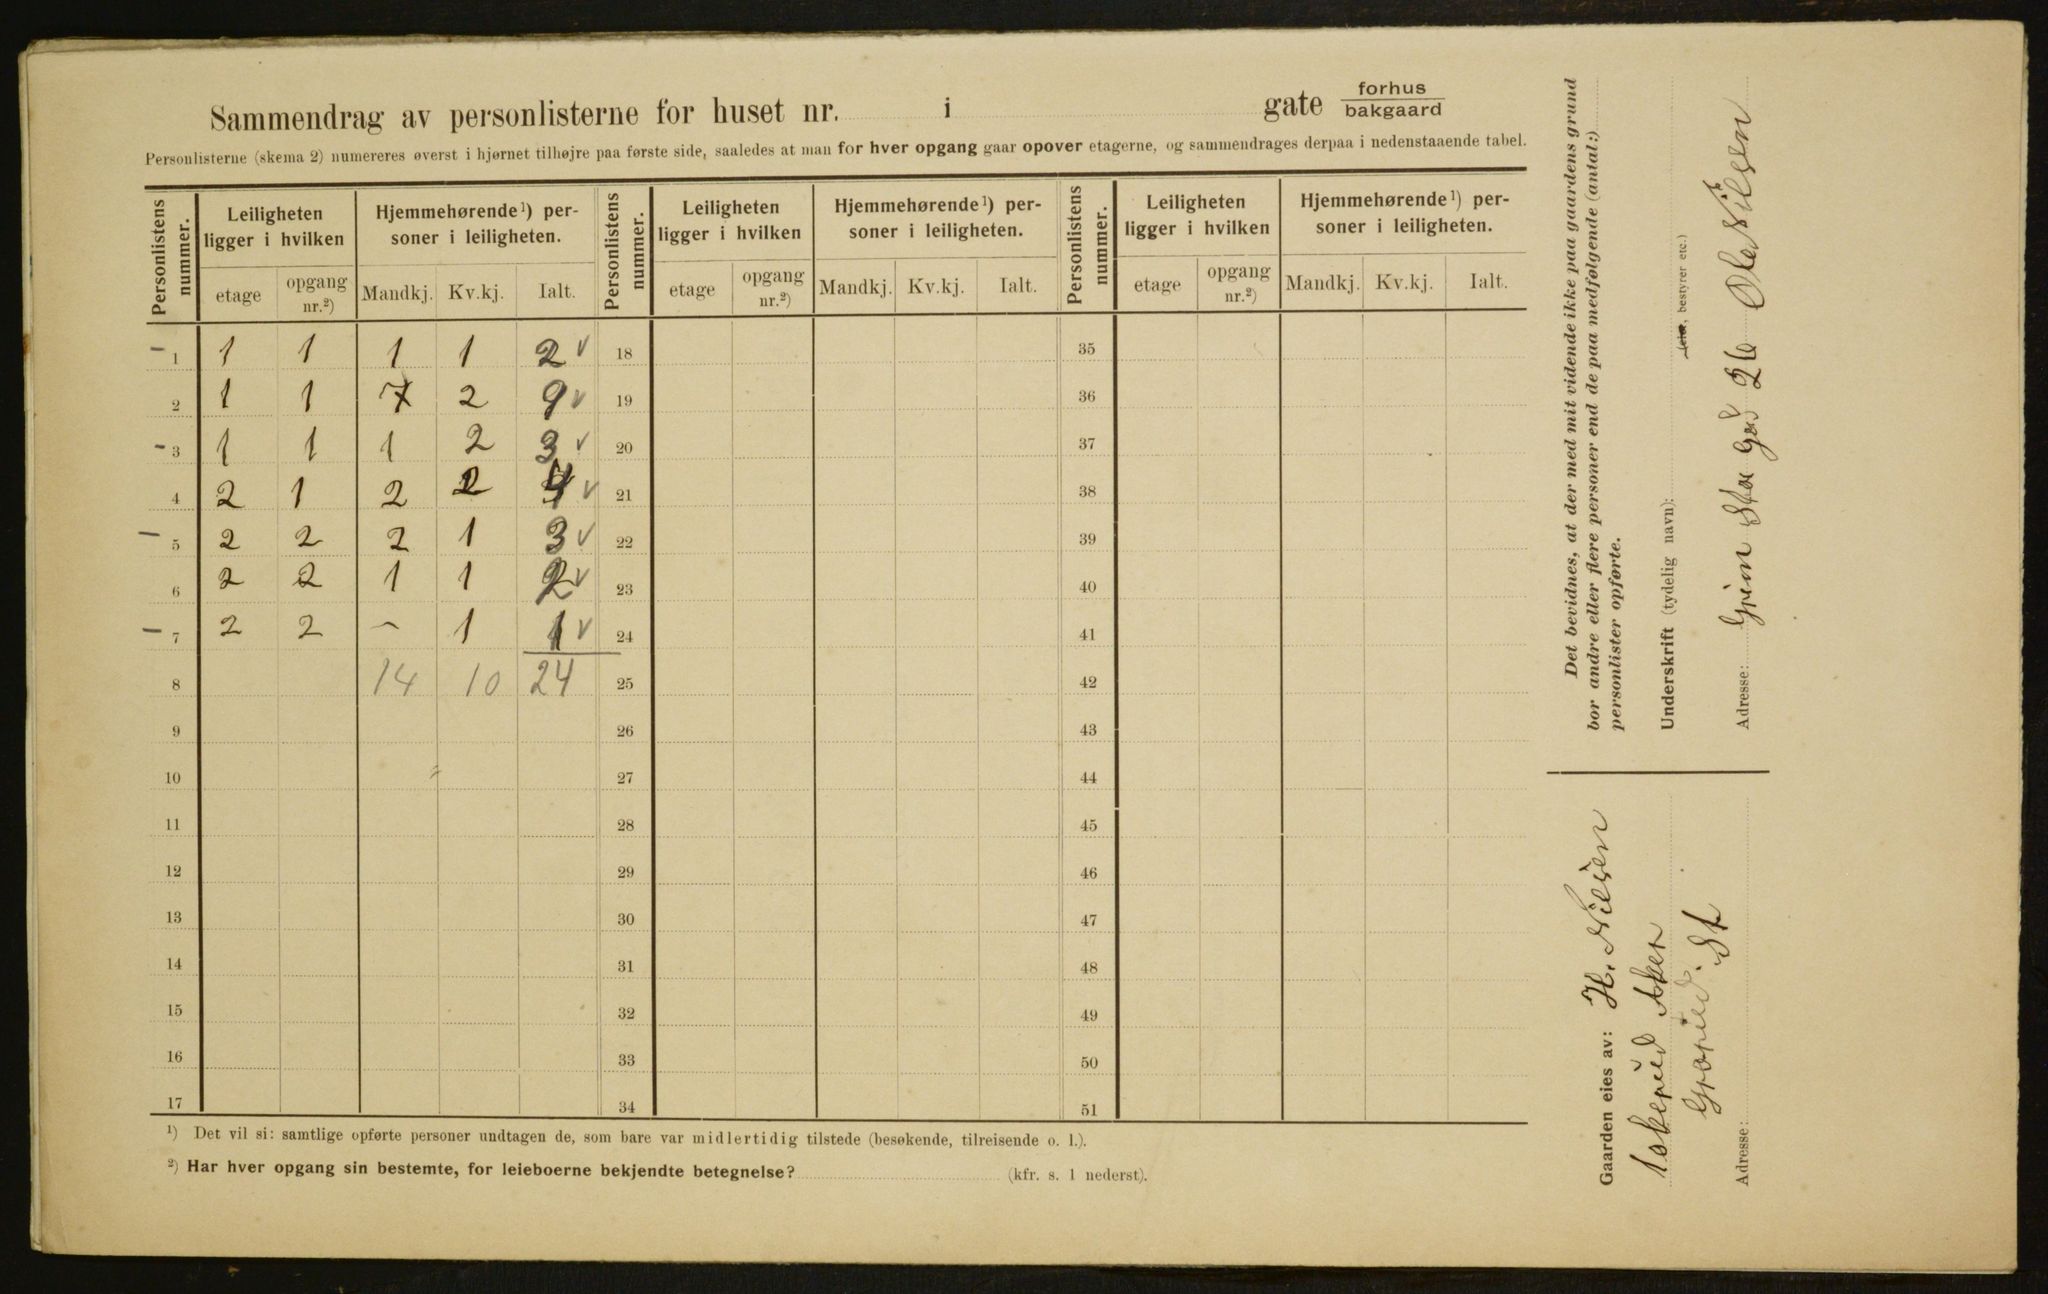 Sammendrag av personlisterne for huset nr. i gate forhus
bakgaard
Personlisterne (skema 2) numereres øverst i hjørnet tilhøjre paa første side, saaledes at man for hver opgang gaar opover etagerne, og sammendrages derpaa i nedenstaaende tabel.
Personlistens nummer. Leiligheten ligger i hvilken Hjemmehørende¹) personer i leiligheten. Personlistens nummer. Leiligheten ligger i hvilken Hjemmehørende¹) personer i leiligheten. Personlistens nummer. Leiligheten ligger i hvilken Hjemmehørende¹) personer i leiligheten.
etage opgang nr.²) Mandkj. Kv.kj. Ialt. etage opgang nr.²) Mandkj. Kv.kj. Ialt. etage opgang nr.²) Mandkj. Kv.kj. Ialt.
– 1 1 1 1 1 2 ✓ 18 35
2 1 1 7 2 9 ✓ 19 36
– 3 1 1 1 2 3 ✓ 20 37
4 2 1 2 2 4 ✓ 21 38
– 5 2 2 2 1 3 ✓ 22 39
6 2 2 1 1 2 ✓ 23 40
– 7 2 2 – 1 1 ✓ 24 41
8 14 10 24 25 42
9 26 43
10 27 44
11 28 45
12 29 46
13 30 47
14 31 48
15 32 49
16 33 50
17 34 51
¹) Det vil si: samtlige opførte personer undtagen de, som bare var midlertidig tilstede (besøkende, tilreisende o. l.).
²) Har hver opgang sin bestemte, for leieboerne bekjendte betegnelse? (kfr. s. 1 nederst).
Det bevidnes, at der med mit vidende ikke paa gaardens grund
bor andre eller flere personer end de paa medfølgende (antal:)
personlister opførte.
Underskrift (tydelig navn):
(eier, bestyrer etc.)
Ole Nilsen
Adresse: 26
Gaarden eies av: H. Nilsen
Aker
Adresse: St